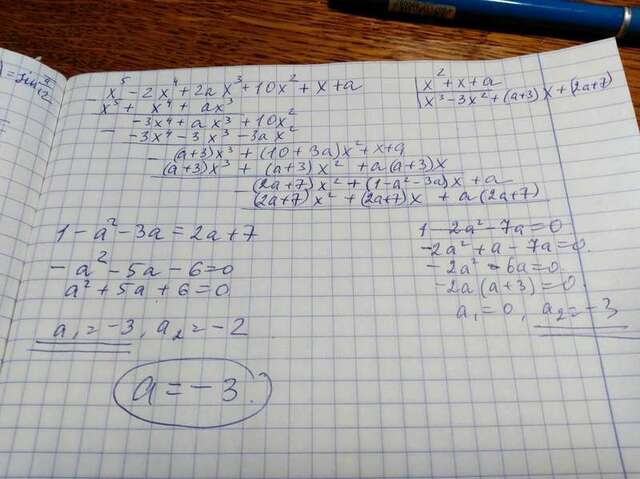 ) = sin π/12
- x⁵ - 2x⁴ + 2ax³ + 10x² + x + a | x² + x + a
x⁵ + x⁴ + ax³ | x³ - 3x² + (a+3)x + (2a+7)
- -3x⁴ + ax³ + 10x²
-3x⁴ - 3x³ - 3ax²
- (a+3)x³ + (10+3a)x² + x + a
(a+3)x³ + (a+3)x² + a(a+3)x
- (2a+7)x² + (1-a²-3a)x + a
(2a+7)x² + (2a+7)x + a(2a+7)
1 - a² - 3a = 2a + 7
- a² - 5a - 6 = 0
a² + 5a + 6 = 0
a₁ = -3, a₂ = -2
1 - 2a² - 7a = 0
-2a² + a - 7a = 0
- 2a² - 6a = 0
-2a(a+3) = 0
a₁ = 0, a₂ = -3
a = -3.